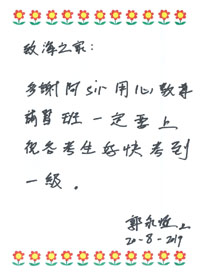 致海之家：
多謝阿sir用心教導
補習班一定要上
祝各考生好快考到
一級。
郭永恒上
20-8-2019